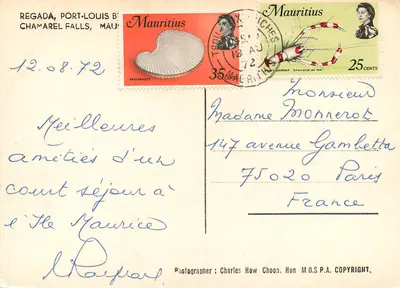 REGADA, PORT-LOUIS B
CHAMAREL FALLS, MAU
Mauritius
35 CENTS
Mauritius
25 CENTS
12.08.72
Meilleures
amitiés d'un
court séjour à
l'Ile Maurice
Monsieur
Madame Monnerot
147 avenue Gambetta
75020 Paris
France
Photographer : Charles How Choon. Hon M.O.S P.A. COPYRIGHT.